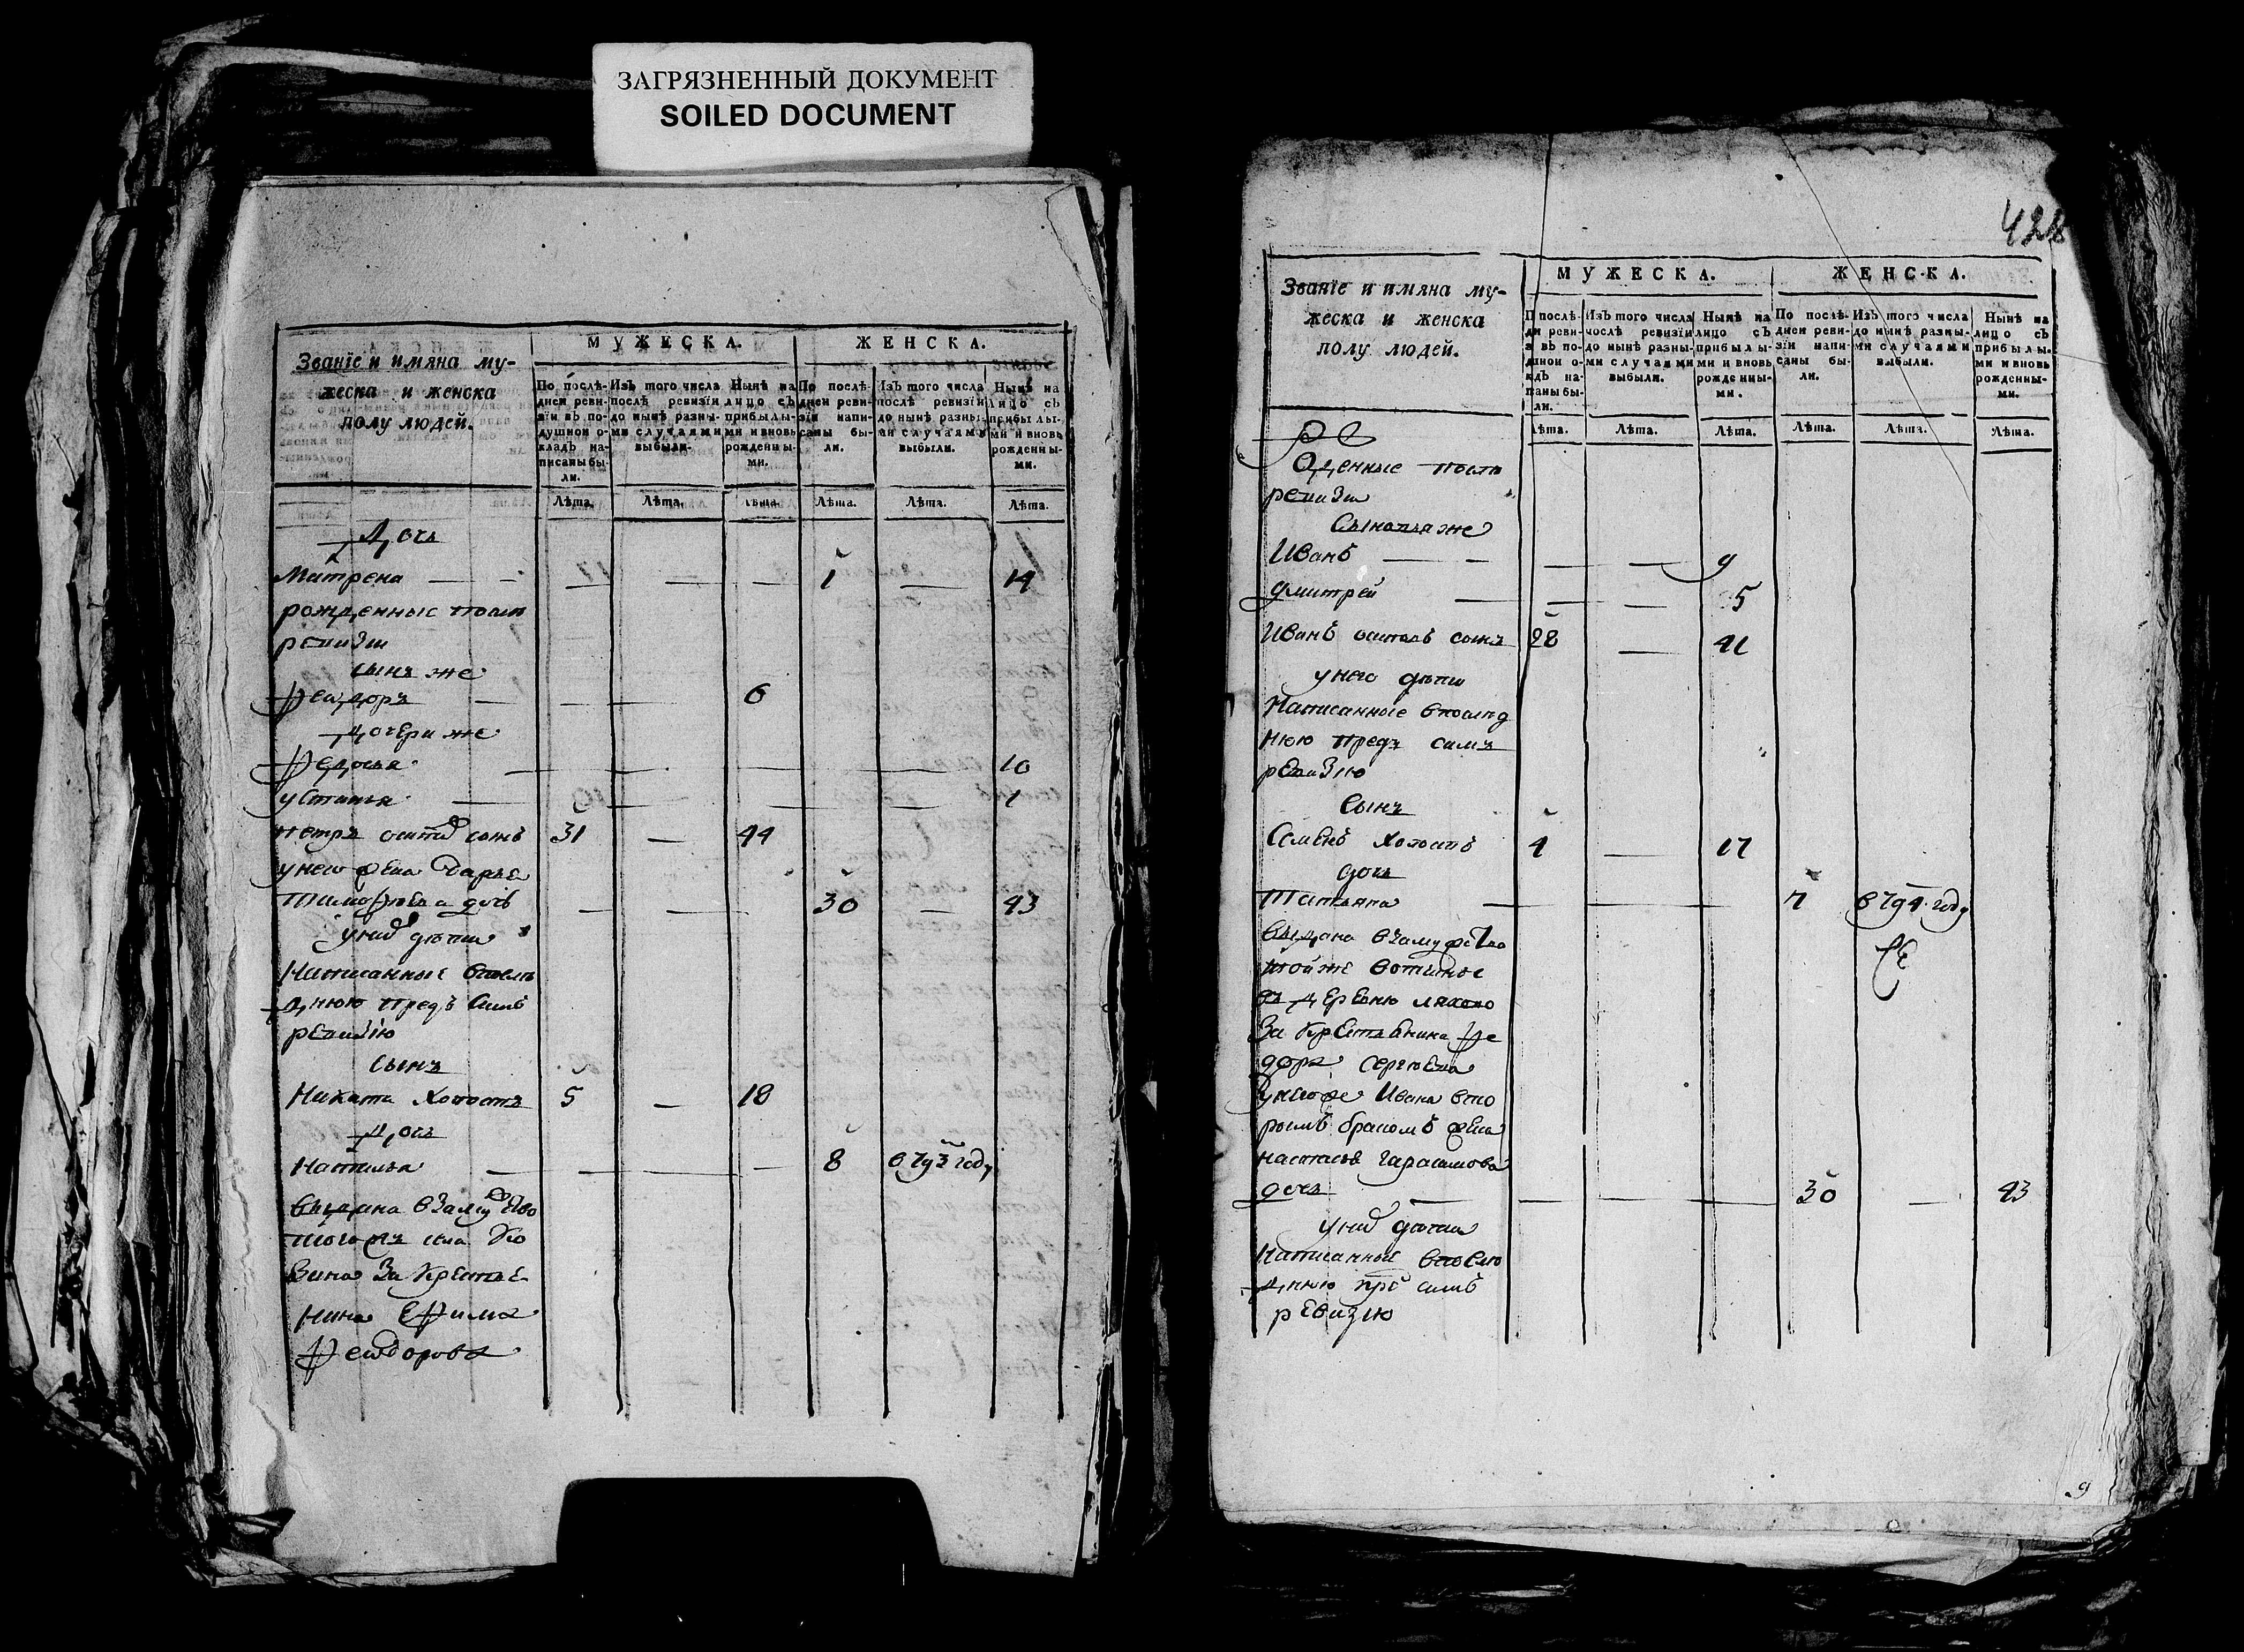 ЗАГРЯЗНЕННЫЙ ДОКУМЕНТ
SOILED DOCUMENT
Званїе и имяна му-
жеска и женска
полу людей.
МУЖЕСКА.
ЖЕНСКА.
По послѣ-
дней реви-
зїи въ по-
душной о-
кладъ на-
писаны бы-
ли.
Изъ того числа
послѣ ревизїи
до нынѣ разны-
ми случаями
выбыли.
Нынѣ на
лицо съ
прибылы-
ми и вновь
рожденны-
ми.
По послѣ-
дней реви-
зїи напи-
саны бы-
ли.
Изъ того числа
послѣ ревизїи
до нынѣ разны-
ми случаями
выбыли.
Нынѣ на
лицо съ
прибылы-
ми и вновь
рожденны-
ми.
Лѣта. Лѣта. Лѣта. Лѣта. Лѣта. Лѣта.
Дочь
Матрена 1 14
рожденные после
ревизии
сынъ же
Феидоръ 6
дочери же
Федосья 10
устинья 1
петръ осипов сынъ 31 44
у него жена Дарья
тимофеева дочь 30 43
у них дети
Написанные в после
днюю предъ симъ
ревизїю
сынъ
Никита холостъ 5 18
Дочь
Наталья 8 в 793 году
выдана в замужество
того жъ села
за крестья
нина Ефима
Феидорова
428
Званїе и имяна му-
жеска и женска
полу людей.
МУЖЕСКА.
ЖЕНСКА.
П послѣ-
ди реви-
а въ по-
дшной о-
кдъ на-
паны бы-
ли.
Изъ того числа
послѣ ревизїи
до нынѣ разны-
ми случаями
выбыли.
Нынѣ на
лицо съ
прибылы-
ми и вновь
рожденны-
ми.
По послѣ-
дней реви-
зїи напи-
саны бы-
ли.
Изъ того числа
до нынѣ разны-
ми случаями
выбыли.
Нынѣ на
лицо съ
прибылы-
ми и вновь
рожденны-
ми.
Лѣта. Лѣта. Лѣта. Лѣта. Лѣта. Лѣта.
жденные после
ревизии
Сыновья же
Иванъ 9
дмитрей 5
Иванъ осиповъ сынъ 28 41
у него дети
Написанные в послед
нюю предъ симъ
ревизию
Сынъ
Семенъ холостъ 4 17
дочь
Татьяна 7 в 794 году
выдана в замужество
той же вотчине
въ деревню ляхово
за крестьянина Фе
дора сергеева
у него же Ивана вто
рымъ бракомъ жена
настасья гарасимова
дочь 30 43
у них дети
Написанные в после
днюю пред симъ
ревизию
9